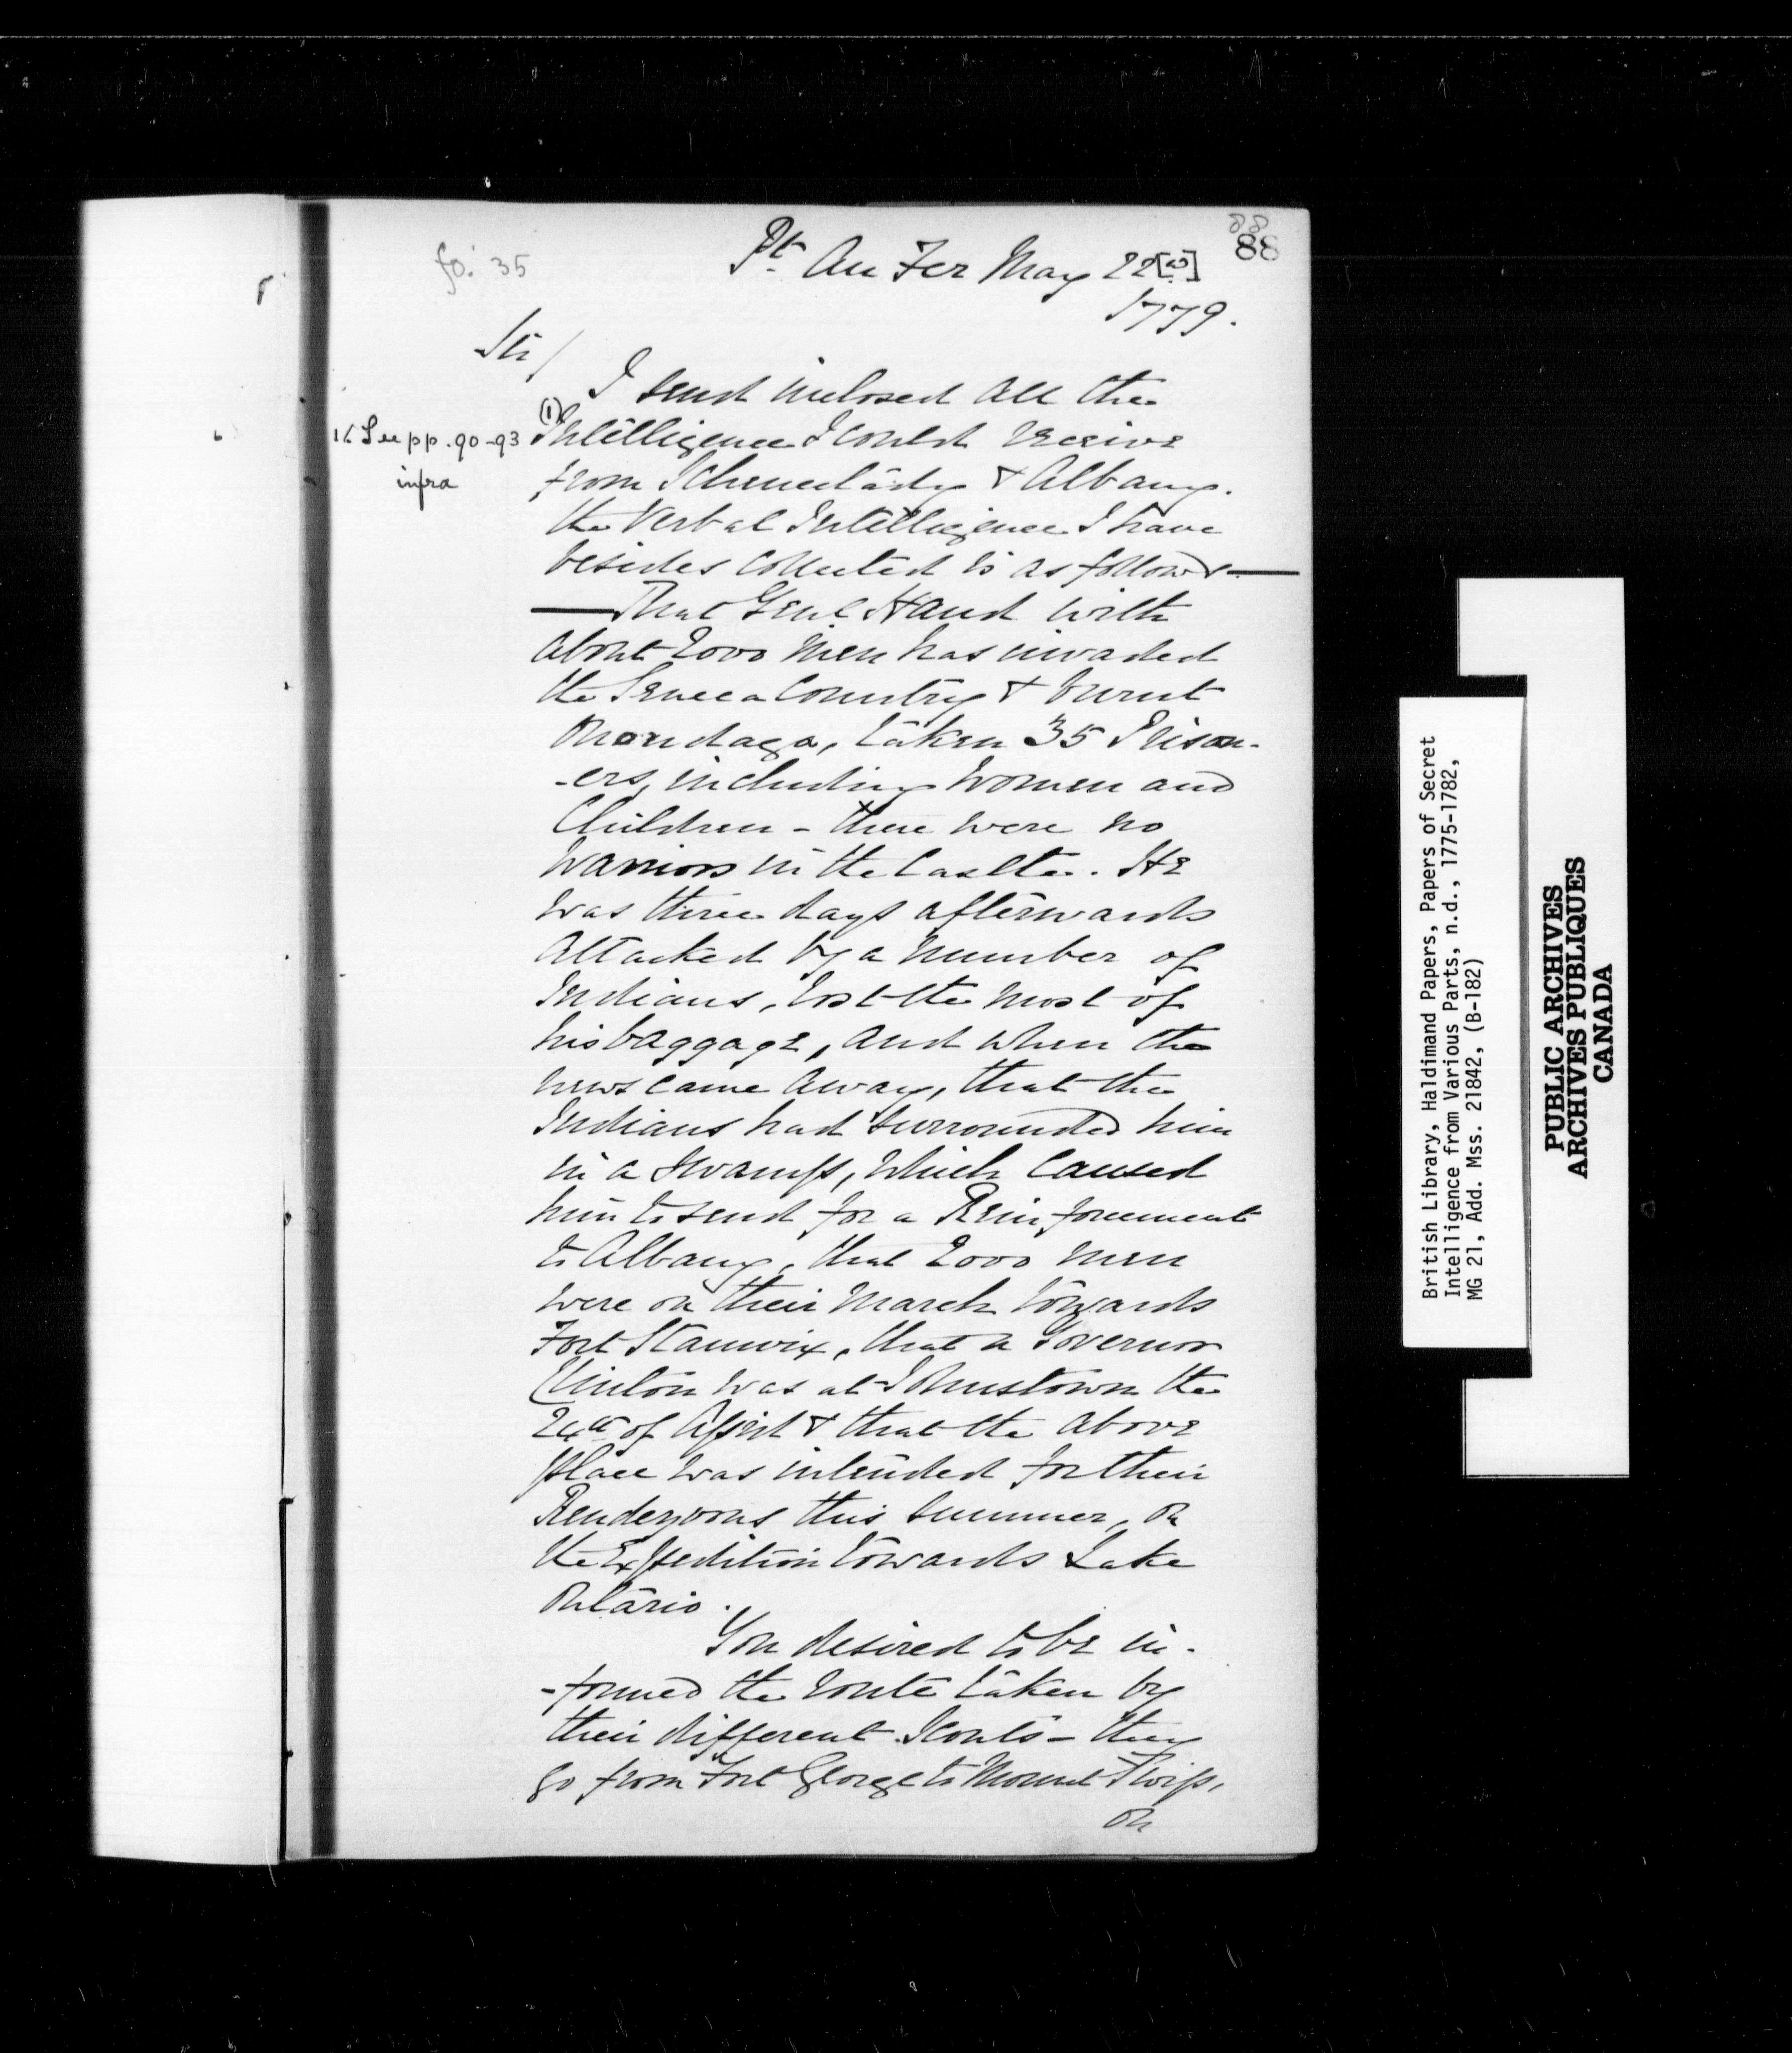 88
88
fo. 35
Pt. Au Fer May 22[d]
1779.
Sir/
I send inclosed all the
1/ See pp. 90-93
infra
(1)
Intelligence I could receive
from Schenectády & Albany.
the Verbal Intelligence I have
besides collected is as follows—
—That Genl Hand with
about 2000 Men has invaded
the Seneca Country & burnt
Onondaga, taken 35 Prison-
-ers, including Women and
Children - there were no
Warriors in the Castle. He
was three days afterwards
Attacked by a number of
Indians, lost the most of
his baggage, and when the
news came away, that the
Indians had surrounded him
in a swamp, which caused
him to send for a Reinforcement
to Albany, that 2000 men
were on their March towards
Fort Stanwix, that a Governor
Clinton was at Johnstown the
24th of April & that the above
place was intended for their
Rendezvous this summer, on
the Expedition towards Lake
Ontario.
You desired to be in-
-formed the route taken by
their different Scouts - they
go from Fort George to Mount
On
British Library, Haldimand Papers, Papers of Secret
Intelligence from Various Parts, n.d., 1775-1782,
MG 21, Add. Mss. 21842, (B-182)
PUBLIC ARCHIVES
ARCHIVES PUBLIQUES
CANADA